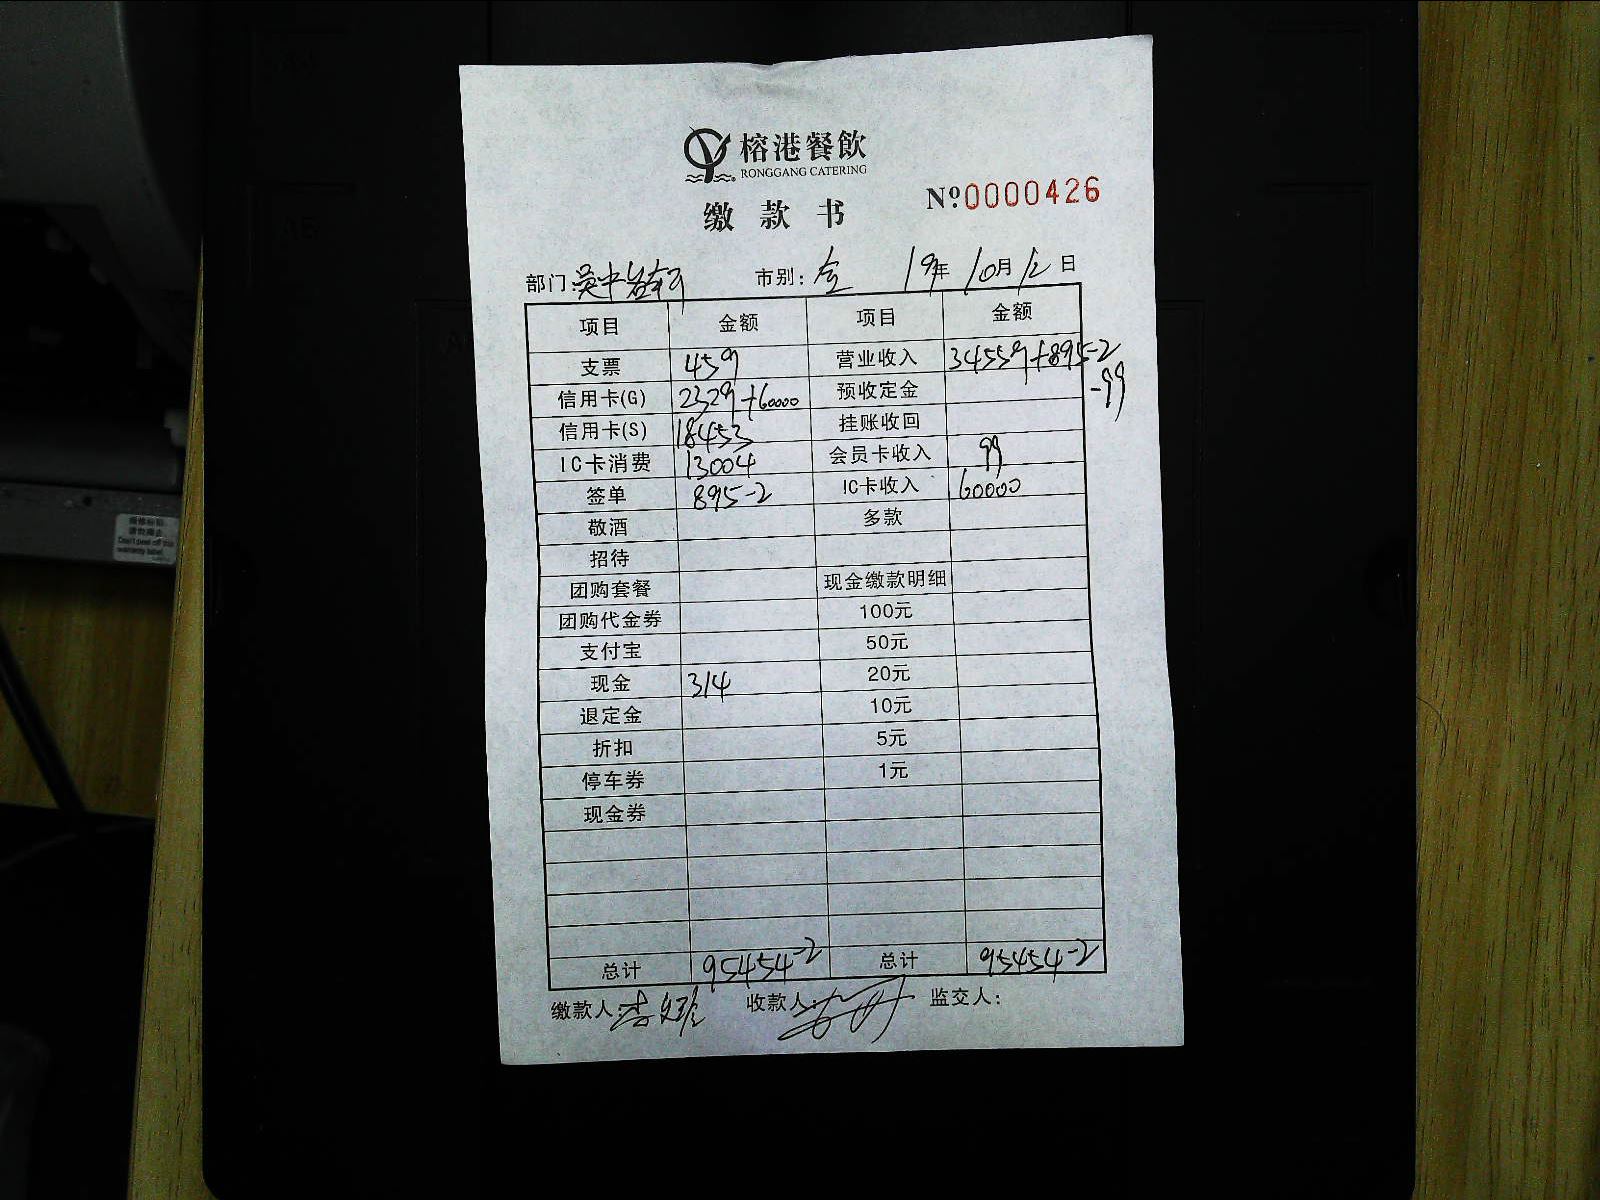 榕港餐飲
RONGGANG CATERING
缴款书
Nº.0000426
部门: 吴中 市别: 全 19年 10月 12日
项目 金额 项目 金额
支票 459 营业收入 34559+895-2
信用卡(G) 2329+60000 预收定金 -99
信用卡(S) 18453 挂账收回
IC卡消费 13004 会员卡收入 99
签单 895-2 IC卡收入 60000
敬酒 多款
招待
团购套餐 现金缴款明细
团购代金券 100元
支付宝 50元
现金 314 20元
退定金 10元
折扣 5元
停车券 1元
现金券
总计 95454-2 总计 95454-2
缴款人: 收款人: 监交人: